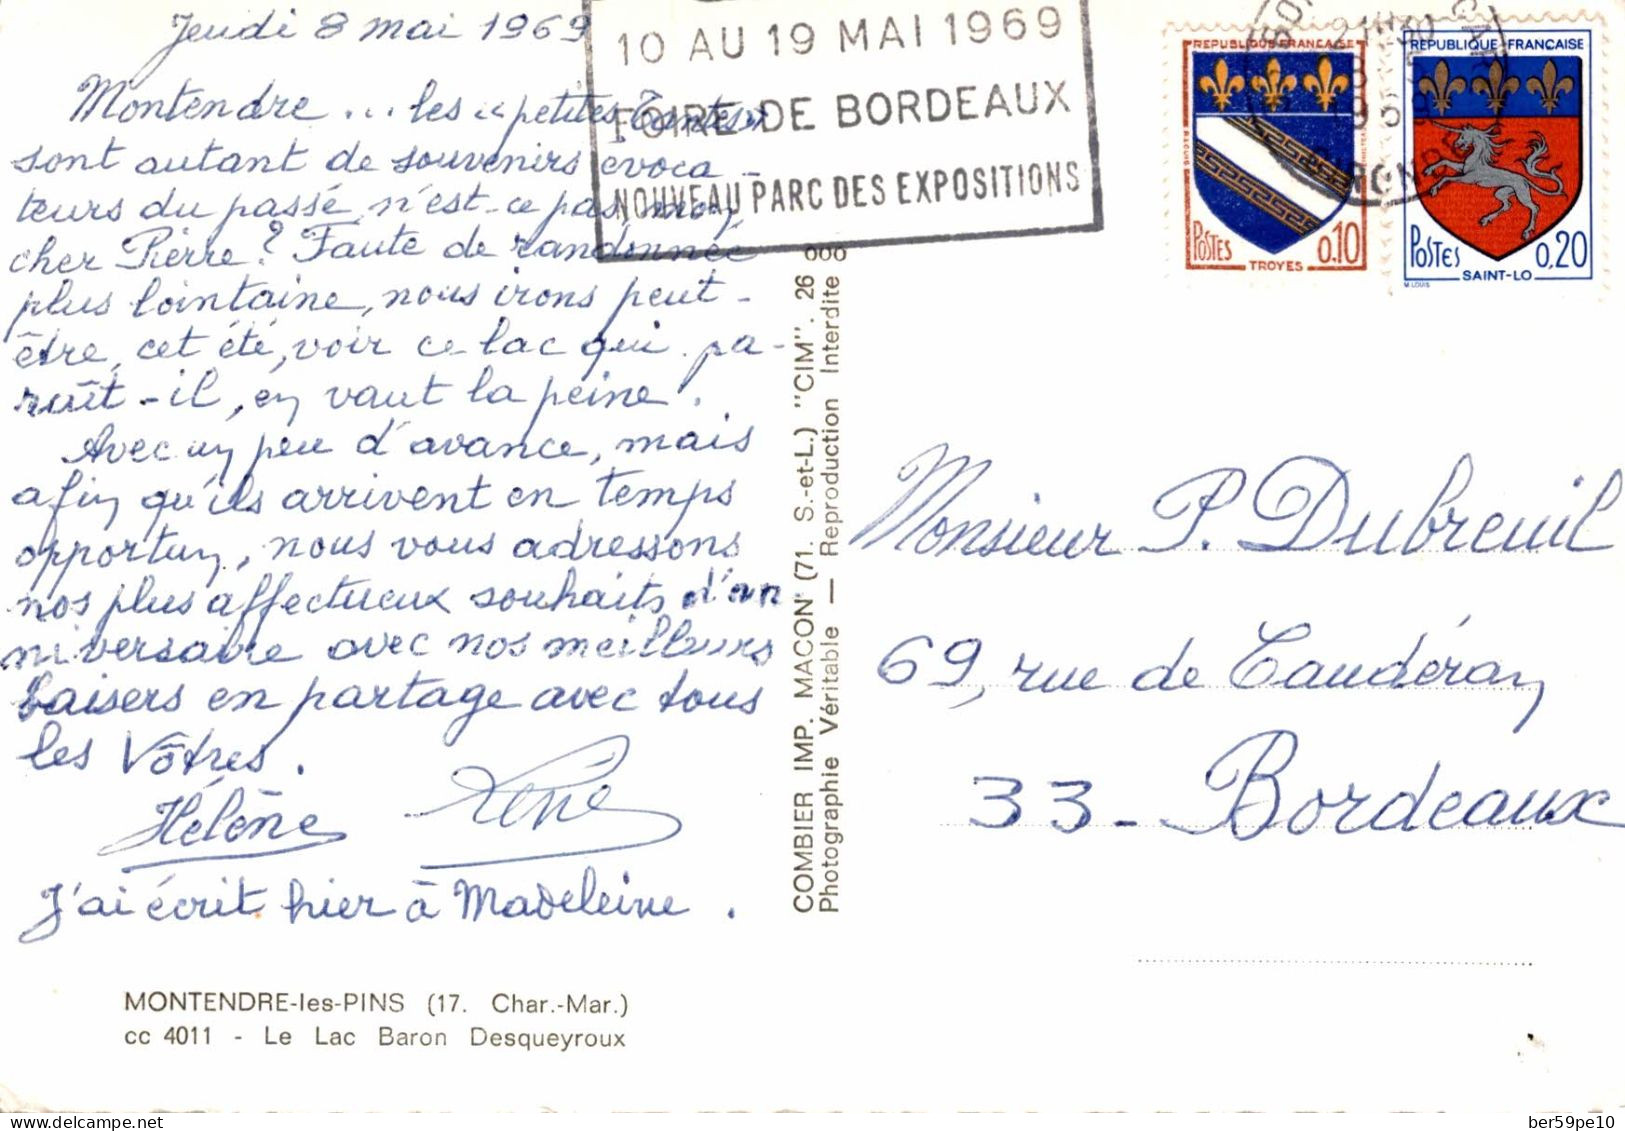 Jeudi 8 mai 1969
Montendre... les "petites Tantes"
sont autant de souvenirs évoca-
teurs du passé, n'est-ce pas mon
cher Pierre? Faute de randonnée
plus lointaine, nous irons peut-
être, cet été, voir ce lac qui pa-
raît-il, en vaut la peine.
Avec un peu d'avance, mais
afin qu'ils arrivent en temps
opportun, nous vous adressons
nos plus affectueux souhaits d'an
niversaire avec nos meilleurs
baisers en partage avec tous
les Vôtres.
Hélène René
J'ai écrit hier à Madeleine.
MONTENDRE-les-PINS (17. Char.-Mar.)
cc 4011 - Le Lac Baron Desqueyroux
COMBIER IMP. MACON (71. S.-et-L.) "CIM". 26 000
Photographie Véritable — Reproduction Interdite
10 AU 19 MAI 1969
FOIRE DE BORDEAUX
NOUVEAU PARC DES EXPOSITIONS
REPUBLIQUE FRANCAISE
POSTES 0,10
TROYES
REPUBLIQUE-FRANÇAISE
POSTES 0,20
SAINT-LO
M.LOUIS
GIRONDE
Monsieur P. Dubreuil
69, rue de Caudéran
33-Bordeaux
ber59pe10